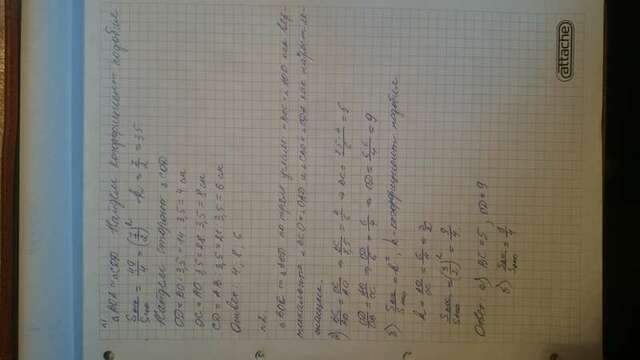 №1
△BOA ~ △COD Найдем коэффициент подобия
= 49/4 = (7/2)² k = 7/2 = 3,5
Найдем стороны △COD
OD = BO : 3,5 = 14 : 3,5 = 4 см
OC = AO : 3,5 = 28 : 3,5 = 8 см
CD = AB : 3,5 = 21 : 3,5 = 6 см
Ответ: 4, 8, 6
№2.
по трем углам: как вер-
тикальные, △BCO = △OAD и как накрест ле-
жащие.
а) BC/AD = OC/AO => BC/7,5 = 4/6 => BC = 7,5·4/6 = 5
OD/OB = AO/OC => OD/6 = 6/4 => OD = 6·6/4 = 9
б) = k², k - коэффициент подобия
k = AO/OC = 6/4 = 3/2
= (3/2)² = 9/4
Ответ: а) BC = 5, OD = 9
б) = 9/4
attache